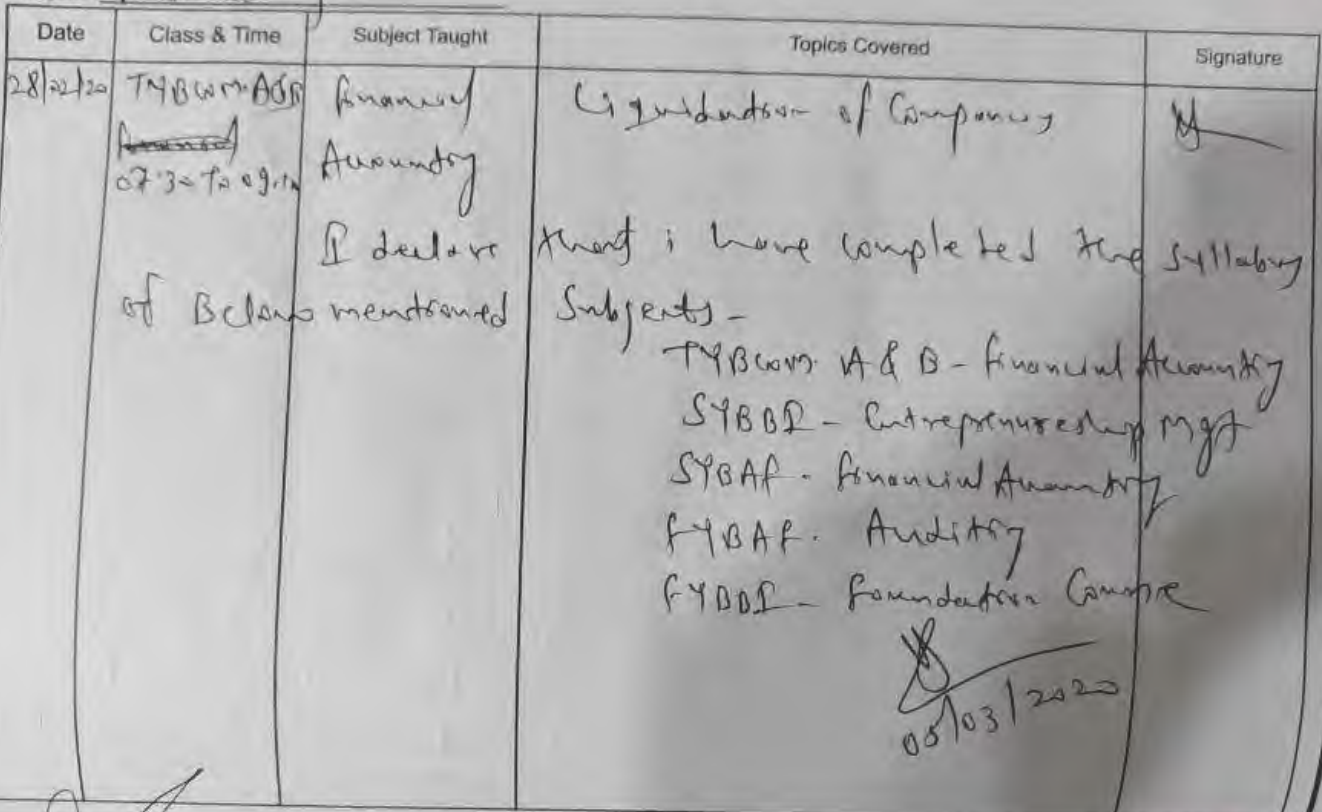 Date Class & Time Subject Taught Topics Covered Signature
28/02/20 TYBCom. A&B Financial Liquidation of Company
07.30 To 09.10 Accounting
I declare that i have completed the syllabus
of Below mentioned Subjects -
TYBCom. A & B - Financial Accounting
SYBBI - Entreprenureship Mgt
SYBAF - Financial Accounting
FYBAF. Auditing
FYBBI - Foundation Course
05/03/2020